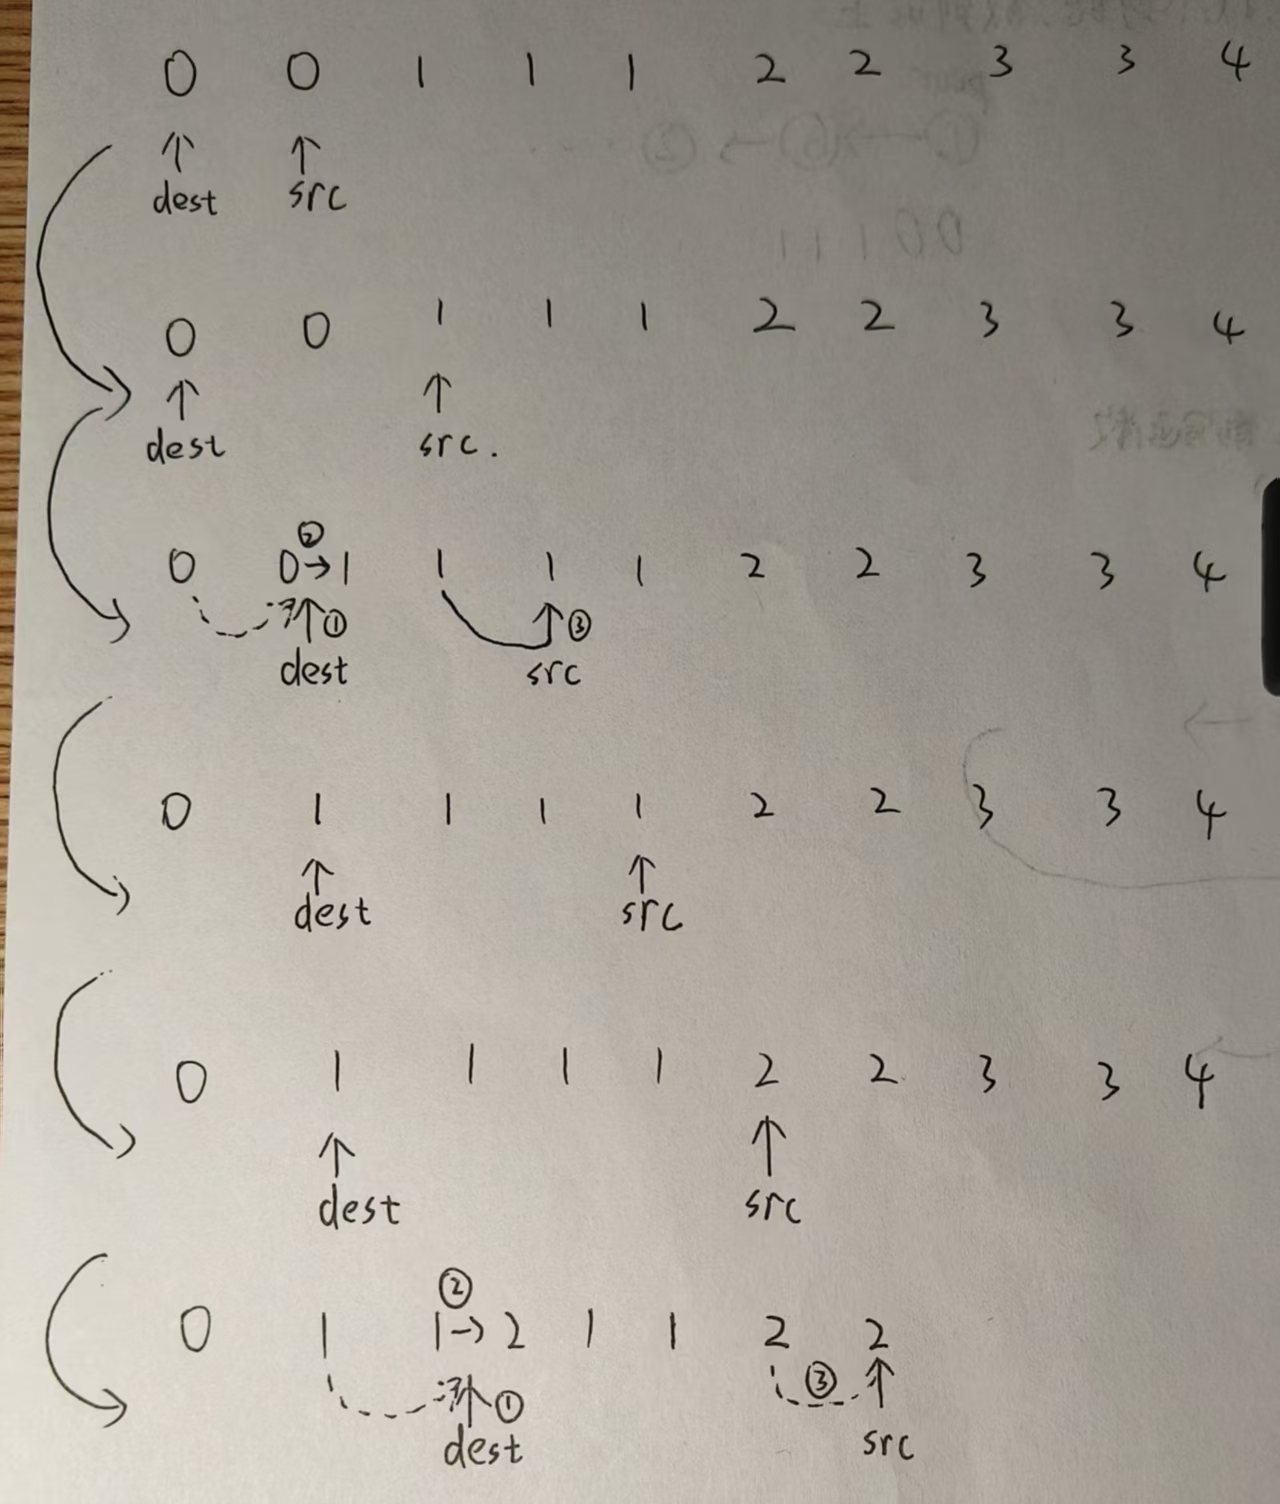 0 0 1 1 1 2 2 3 3 4
↑ ↑
dest src
0 0 1 1 1 2 2 3 3 4
↑ ↑
dest src.
②
0 0→1 1 1 1 2 2 3 3 4
↑① ↑③
dest src
0 1 1 1 1 2 2 3 3 4
↑ ↑
dest src
0 1 1 1 1 2 2 3 3 4
↑ ↑
dest src
②
0 1 1→2 1 1 2 2
↑① ③ ↑
dest src